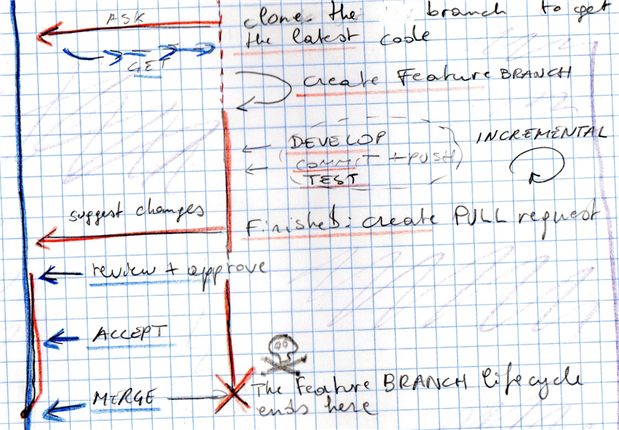 ASK
clone the branch to get
the latest code
GET
create Feature BRANCH
DEVELOP
COMMIT + PUSH
TEST
INCREMENTAL
suggest changes
Finished: create PULL request
review + approve
ACCEPT
MERGE
The Feature BRANCH lifecycle
ends here